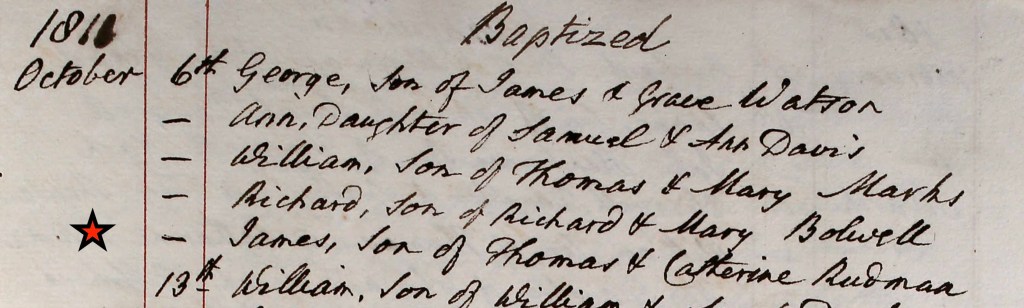 1811
Baptized
October 6th George, Son of James & Grace Watson
— Ann, Daughter of Samuel & Ann Davis
— William, Son of Thomas & Mary Marks
— Richard, Son of Richard & Mary Bolwell
— James, Son of Thomas & Catherine Rudman
13th William, Son of William &